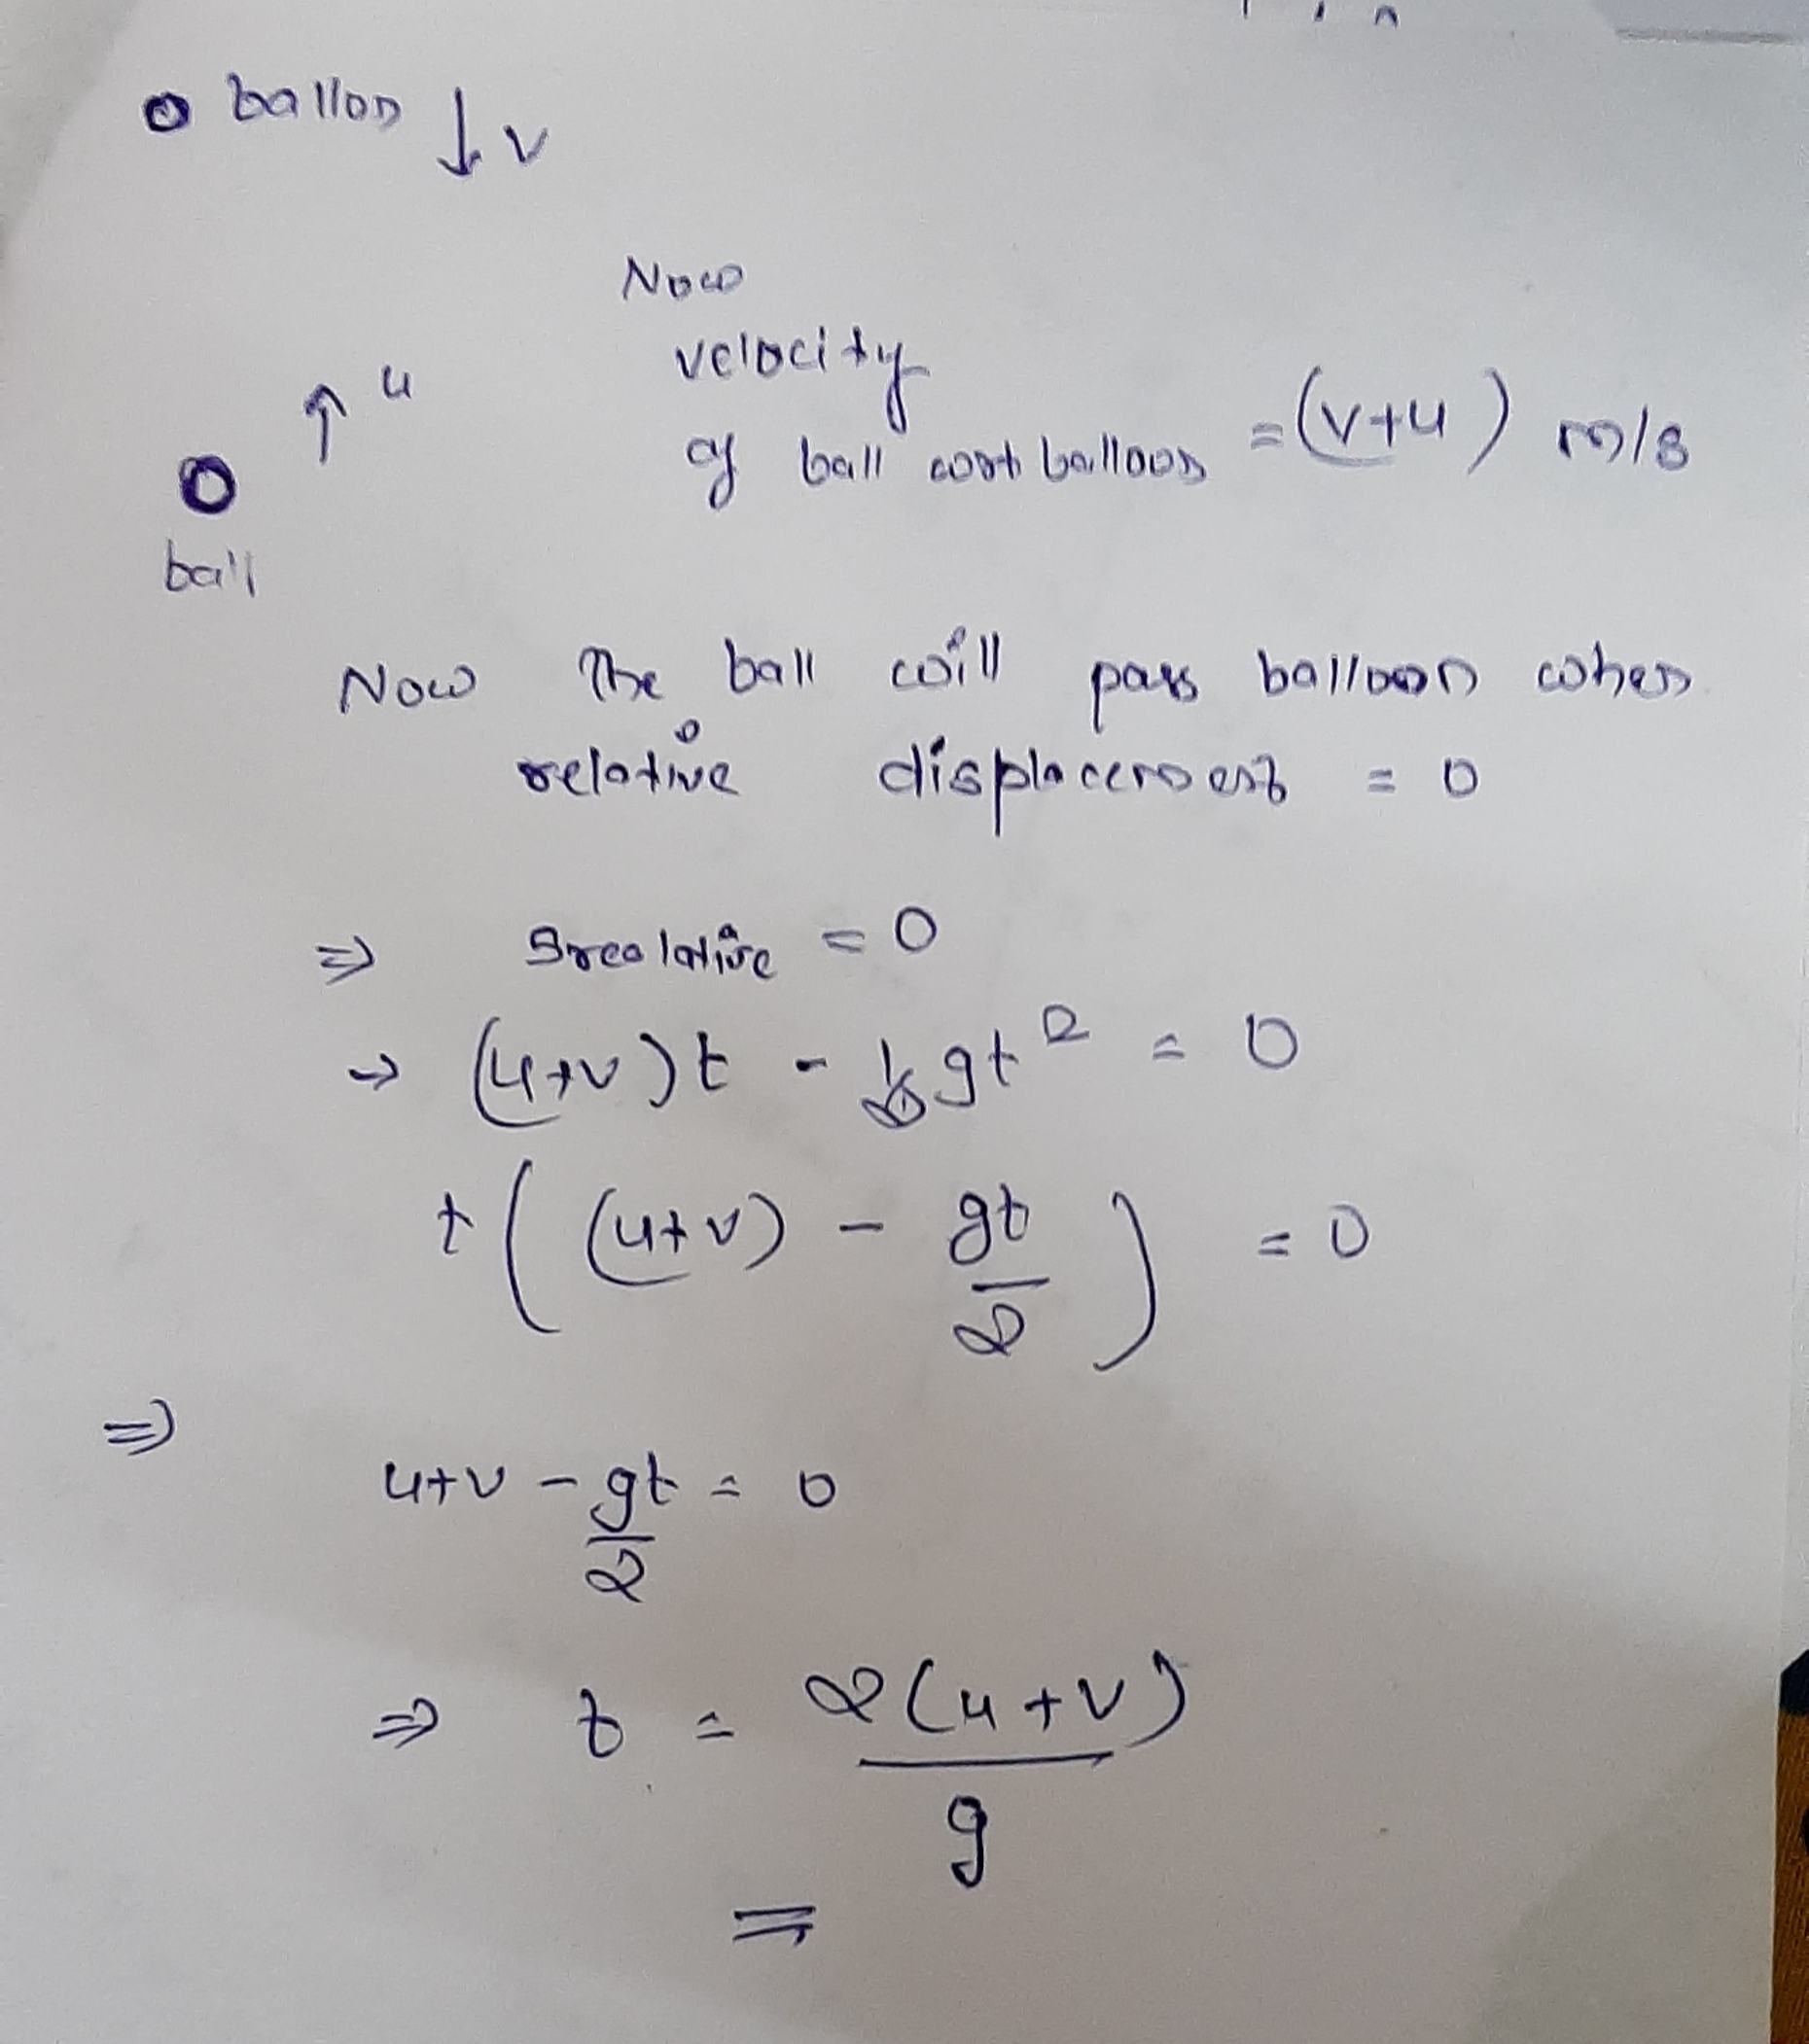 ballon ↓ v
Now
velocity
↑ u
of ball wrt balloon = (v+u) m/s
ball
Now the ball will pass balloon when
relative displacement = 0
⇒ Srealative = 0
→ (u+v)t - 1/2 gt² = 0
t ( (u+v) - gt/2 ) = 0
⇒
u+v - gt/2 = 0
⇒ t = 2(u+v)/g
=